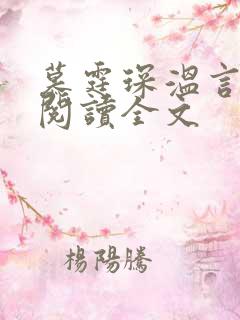 慕霆琛溫言
閱讀全文
楊陽騰